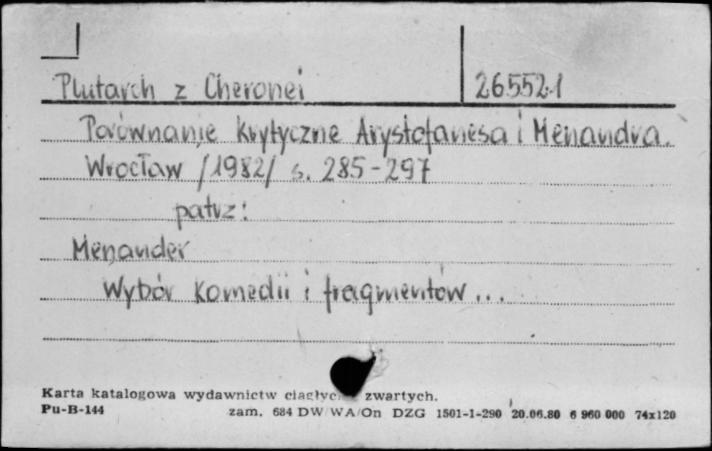 Plutarch z Cheronei 265521
Porównanie krytyczne Arystofanesa i Menandra.
Wrocław /1982/ s. 285-297
patrz:
Menander
Wybór komedii i fragmentów...
Karta katalogowa wydawnictw zwartych.
Pu-B-144 zam. 684 DW WA/On DZG 1501-1-290 20.06.80 6 960 000 74x120